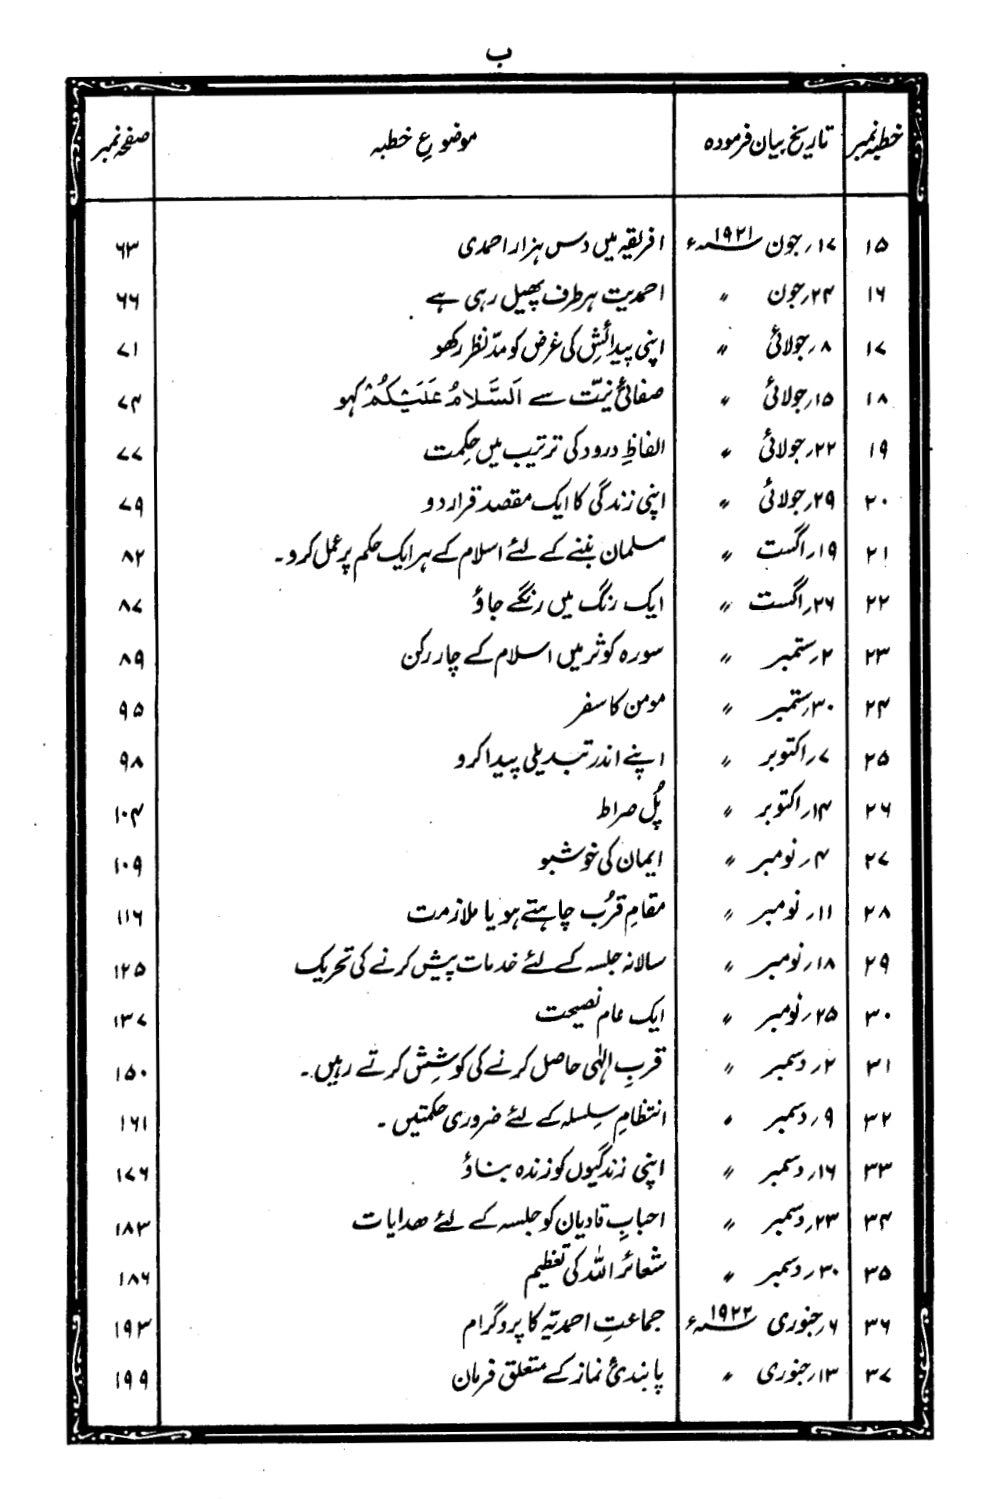 ب
خطبہ نمبر تاریخ بیان فرمودہ موضوعِ خطبہ صفحہ نمبر
۱۵ ۱۷؍جون ۱۹۲۱ء افریقہ میں دس ہزار احمدی ۶۳
۱۶ ۲۴؍جون 〃 احمدیت ہر طرف پھیل رہی ہے ۶۶
۱۷ ۸؍جولائی 〃 اپنی پیدائش کی غرض کو مدّنظر رکھو ۷۱
۱۸ ۱۵؍جولائی 〃 صفائیٔ نیّت سے اَلسَّلَامُ عَلَیْکُمْ کہو ۷۴
۱۹ ۲۲؍جولائی 〃 الفاظِ درود کی ترتیب میں حِکمت ۷۷
۲۰ ۲۹؍جولائی 〃 اپنی زندگی کا ایک مقصد قرار دو ۷۹
۲۱ ۱۹؍اگست 〃 مسلمان بننے کے لئے اسلام کے ہر ایک حکم پر عمل کرو۔ ۸۲
۲۲ ۲۶؍اگست 〃 ایک رنگ میں رنگے جاؤ ۸۷
۲۳ ۲؍ستمبر 〃 سورہ کوثر میں اسلام کے چار رکن ۸۹
۲۴ ۳۰؍ستمبر 〃 مومن کا سفر ۹۵
۲۵ ۷؍اکتوبر 〃 اپنے اندر تبدیلی پیدا کرو ۹۸
۲۶ ۱۴؍اکتوبر 〃 پُل صراط ۱۰۴
۲۷ ۴؍نومبر 〃 ایمان کی خوشبو ۱۰۹
۲۸ ۱۱؍نومبر 〃 مقامِ قرُب چاہتے ہو یا ملازمت ۱۱۶
۲۹ ۱۸؍نومبر 〃 سالانہ جلسہ کے لئے خدمات پیش کرنے کی تحریک ۱۲۵
۳۰ ۲۵؍نومبر 〃 ایک عام نصیحت ۱۳۷
۳۱ ۲؍دسمبر 〃 قربِ الٰہی حاصل کرنے کی کوشِش کرتے رہیں۔ ۱۵۰
۳۲ ۹؍دسمبر 〃 انتظامِ سِلسلہ کے لئے ضروری حکمتیں۔ ۱۶۱
۳۳ ۱۶؍دسمبر 〃 اپنی زندگیوں کو زندہ بناؤ ۱۷۶
۳۴ ۲۳؍دسمبر 〃 احبابِ قادیان کو جلسہ کے لئے ھدایات ۱۸۳
۳۵ ۳۰؍دسمبر 〃 شعائر اللہ کی تعظیم ۱۸۶
۳۶ ۶؍جنوری ۱۹۲۲ء جماعتِ احمدیّہ کا پروگرام ۱۹۳
۳۷ ۱۳؍جنوری 〃 پابندیٔ نماز کے متعلق فرمان ۱۹۹